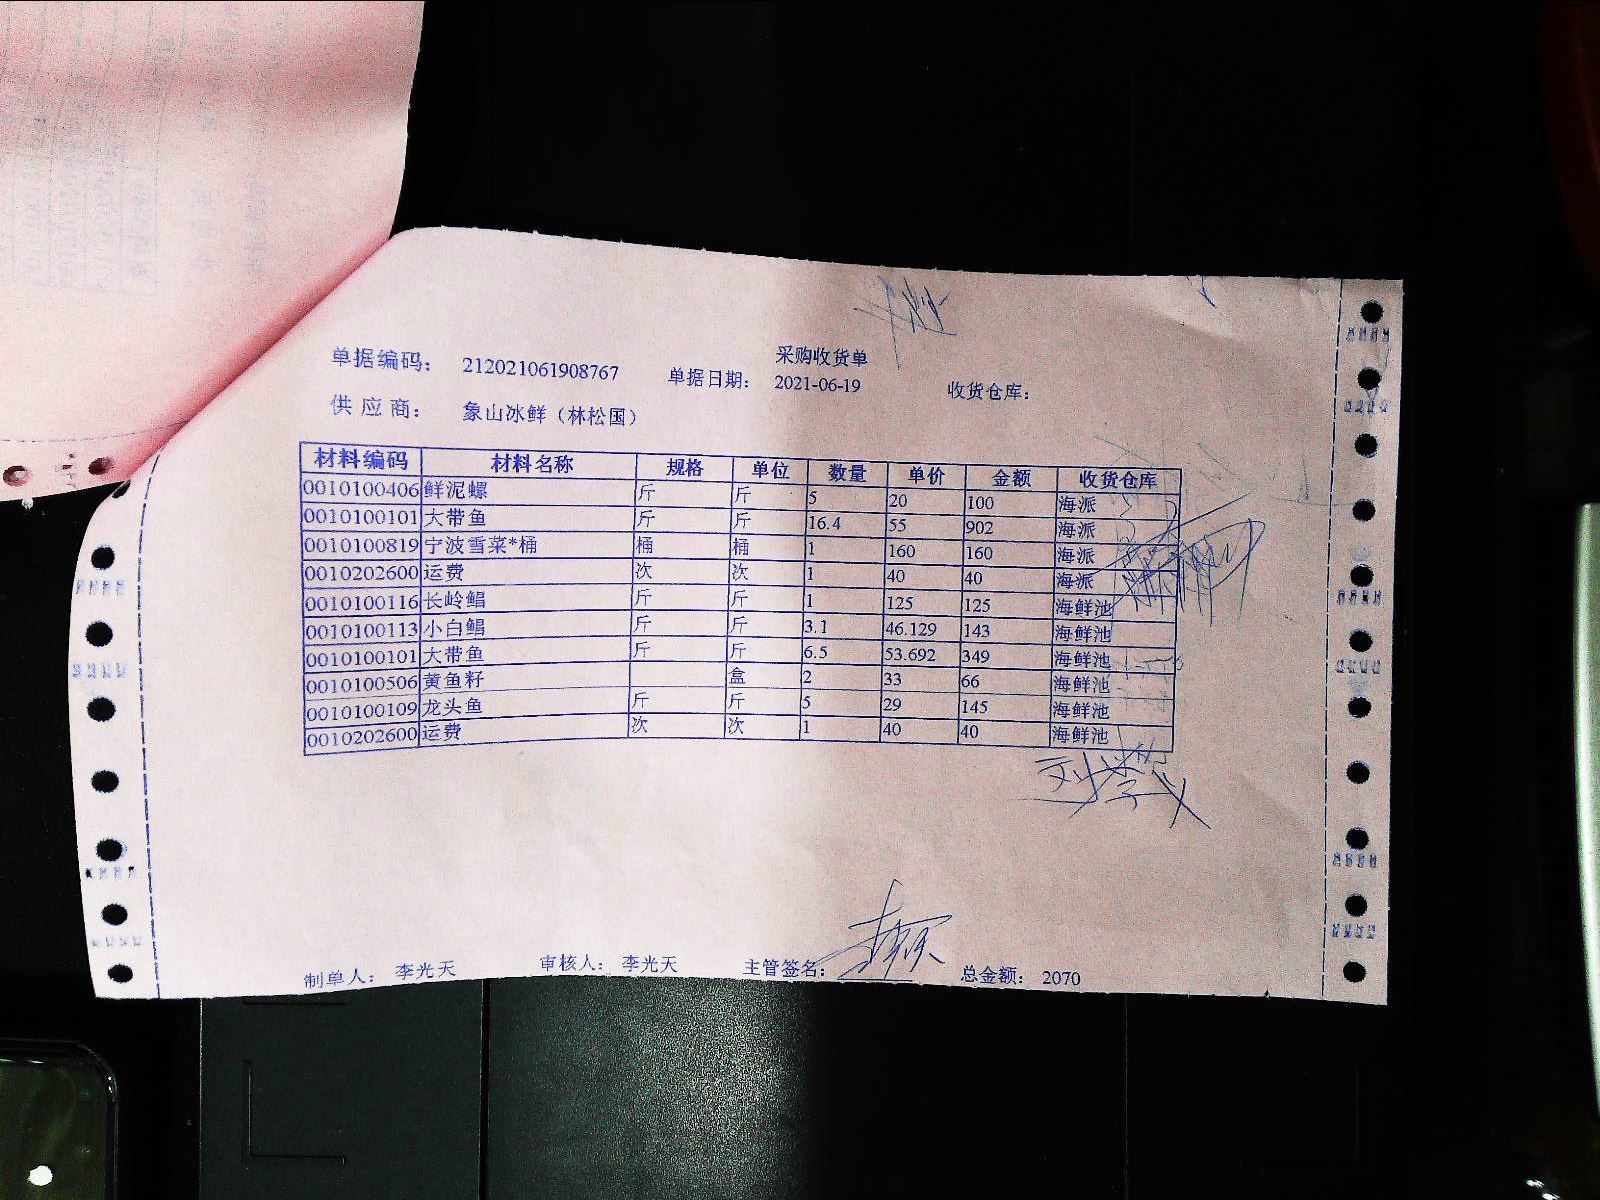 采购收货单
单据编码： 212021061908767 单据日期： 2021-06-19 收货仓库：
供应商： 象山冰鲜（林松国）
材料编码 材料名称 规格 单位 数量 单价 金额 收货仓库
0010100406 鲜泥螺 斤 斤 5 20 100 海派
0010100101 大带鱼 斤 斤 16.4 55 902 海派
0010100819 宁波雪菜*桶 桶 桶 1 160 160 海派
0010202600 运费 次 次 1 40 40 海派
0010100116 长岭鲳 斤 斤 1 125 125 海鲜池
0010100113 小白鲳 斤 斤 3.1 46.129 143 海鲜池
0010100101 大带鱼 斤 斤 6.5 53.692 349 海鲜池
0010100506 黄鱼籽 盒 2 33 66 海鲜池
0010100109 龙头鱼 斤 斤 5 29 145 海鲜池
0010202600 运费 次 次 1 40 40 海鲜池
制单人： 李光天 审核人： 李光天 主管签名： 总金额： 2070